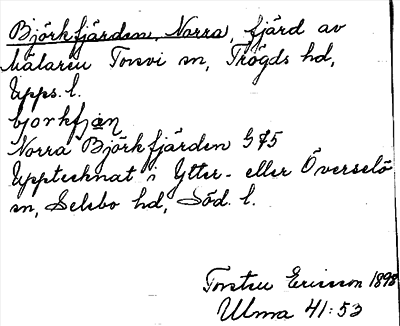 Björkfjärden, Norra, fjärd av
Mälaren Torsvi sn, Trögds hd,
Upps. l.
bjorkfjan
Norra Björkfjärden G75
Upptecknat i Ytter- eller Överselö
sn, Selebo hd, Söd. l.
Torsten Ericsson 1898
Ulma 41:53